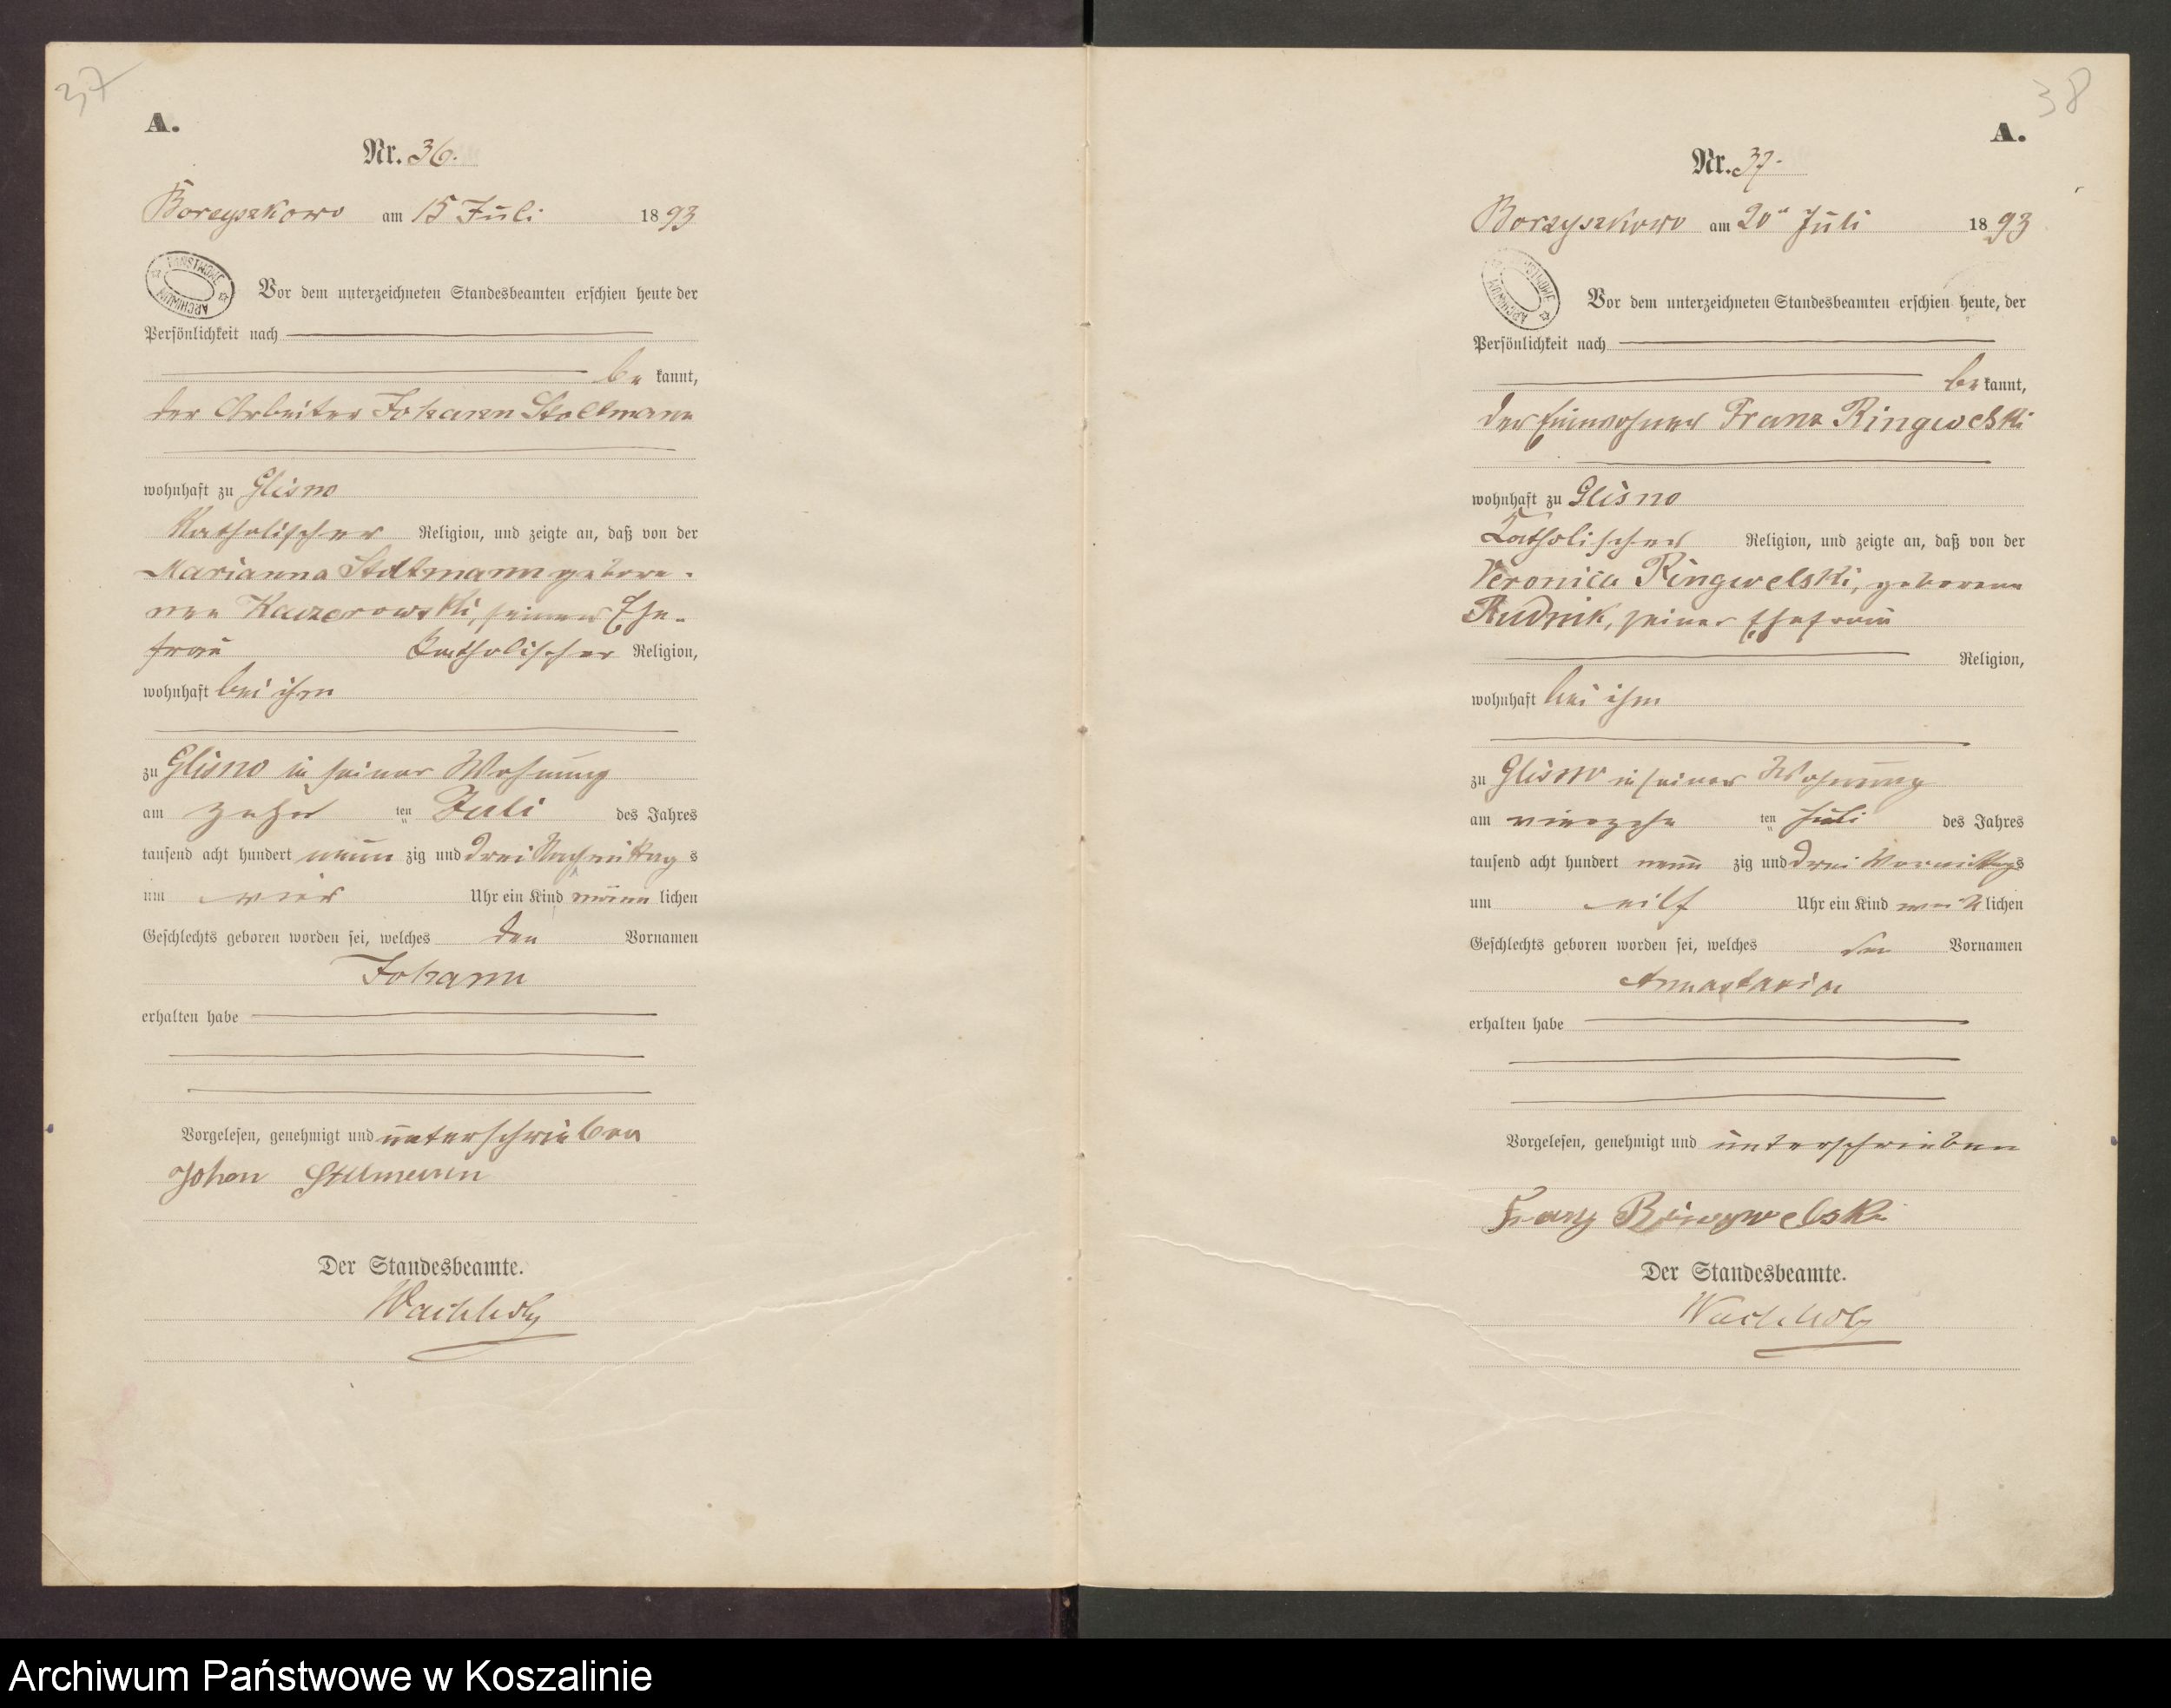 37
A.
Nr. 36.
Borzyszkowo am 15 Juli 1893
PAŃSTWOWE ARCHIWUM
Vor dem unterzeichneten Standesbeamten erschien heute der
Persönlichkeit nach
be kannt,
der Arbeiter Johann Stollmann
wohnhaft zu Glisno
Katholischer Religion, und zeigte an, daß von der
Marianna Stoltmann gebore-
nen seiner Ehe-
frau Katholischer Religion,
wohnhaft bei ihm
zu Glisno in seiner Wohnung
am zehn ten Juli des Jahres
tausend acht hundert neun zig und drei Nachmittag s
um vier Uhr ein Kind männ lichen
Geschlechts geboren worden sei, welches den Vornamen
Johann
erhalten habe
Vorgelesen, genehmigt und unterschrieben
Johan
Der Standesbeamte.
Wachholz
38
A.
Nr. 37.
Borzyszkowo am 20ten Juli 1893
PAŃSTWOWE ARCHIWUM
Vor dem unterzeichneten Standesbeamten erschien heute, der
Persönlichkeit nach
be kannt,
der Einwohner Franz Ringwelski
wohnhaft zu Glisno
Katholischer Religion, und zeigte an, daß von der
Veronica Ringwelski, geborene
Rudnik, seiner Ehefrau
Religion,
wohnhaft bei ihm
zu Glisno in seiner Wohnung
am vierzehn ten Juli des Jahres
tausend acht hundert neun zig und drei Vormittags
um eilf Uhr ein Kind weib lichen
Geschlechts geboren worden sei, welches den Vornamen
Annastasia
erhalten habe
Vorgelesen, genehmigt und unterschrieben
Franz Ringwelski
Der Standesbeamte.
Wachholz
Archiwum Państwowe w Koszalinie